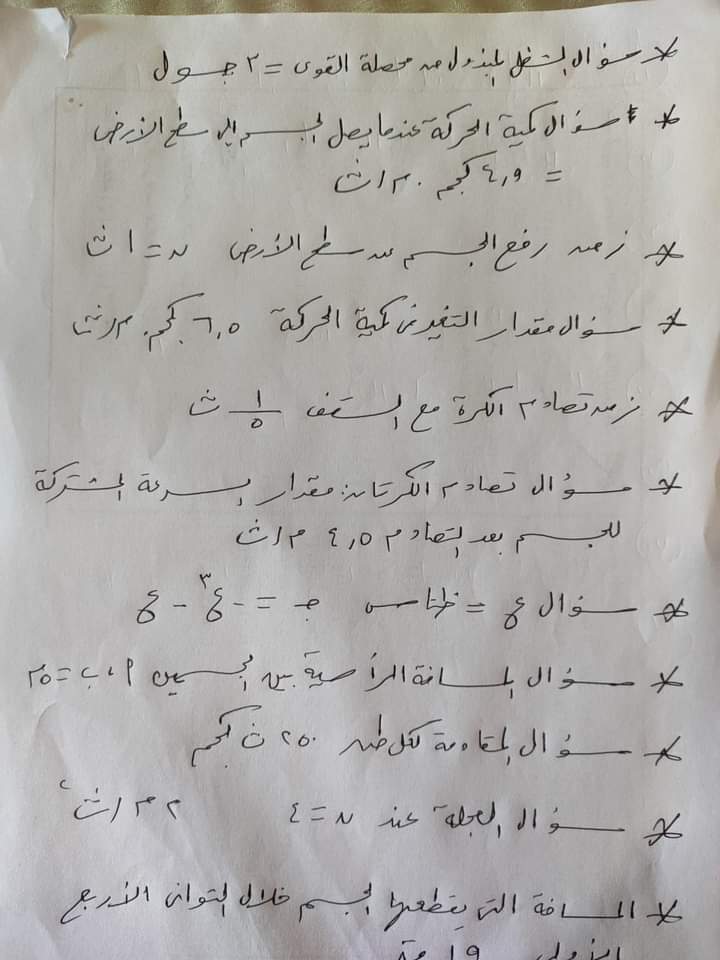 * سؤال الشغل المبذول من محصلة القوى = ٢ جول
* سؤال كمية الحركة عندما يصل الجسم إلى سطح الأرض
= ٤,٩ كجم . م/ث
* زمن رفع الجسم عن سطح الأرض ن = ١ ث
* سؤال مقدار التغير فى كمية الحركة ٦,٥ كجم. م/ث
* زمن تصادم الكرة مع السقف ١/٥ ث
* سؤال تصادم الكرتان: مقدار السرعة المشتركة
للجسم بعد التصادم ٤,٥ م/ث
* سؤال ع = ظتاس جـ = - ع٣ - ع
* سؤال المسافة الرأسية بين الجسمين ٢٥ = ب، أ
* سؤال المقاومة لكل طن ٢٥٠ ث كجم
* سؤال العجلة عند ن = ٤ ٢ م/ث٢
* المسافة التى يقطعها الجسم خلال الثوانى الأربع
الأولى ١٩ متر